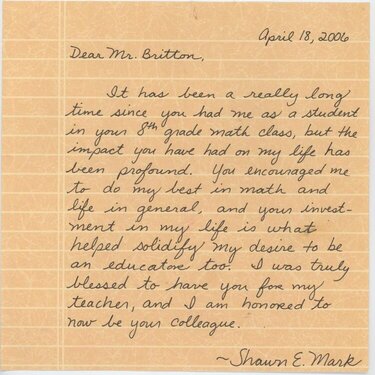 April 18, 2006
Dear Mr. Britton,
It has been a really long
time since you had me as a student
in your 8th grade math class, but the
impact you have had on my life has
been profound. You encouraged me
to do my best in math and
life in general, and your invest-
ment in my life is what
helped solidify my desire to be
an educator too. I was truly
blessed to have you for my
teacher, and I am honored to
now be your colleague.
~Shawn E. Mark